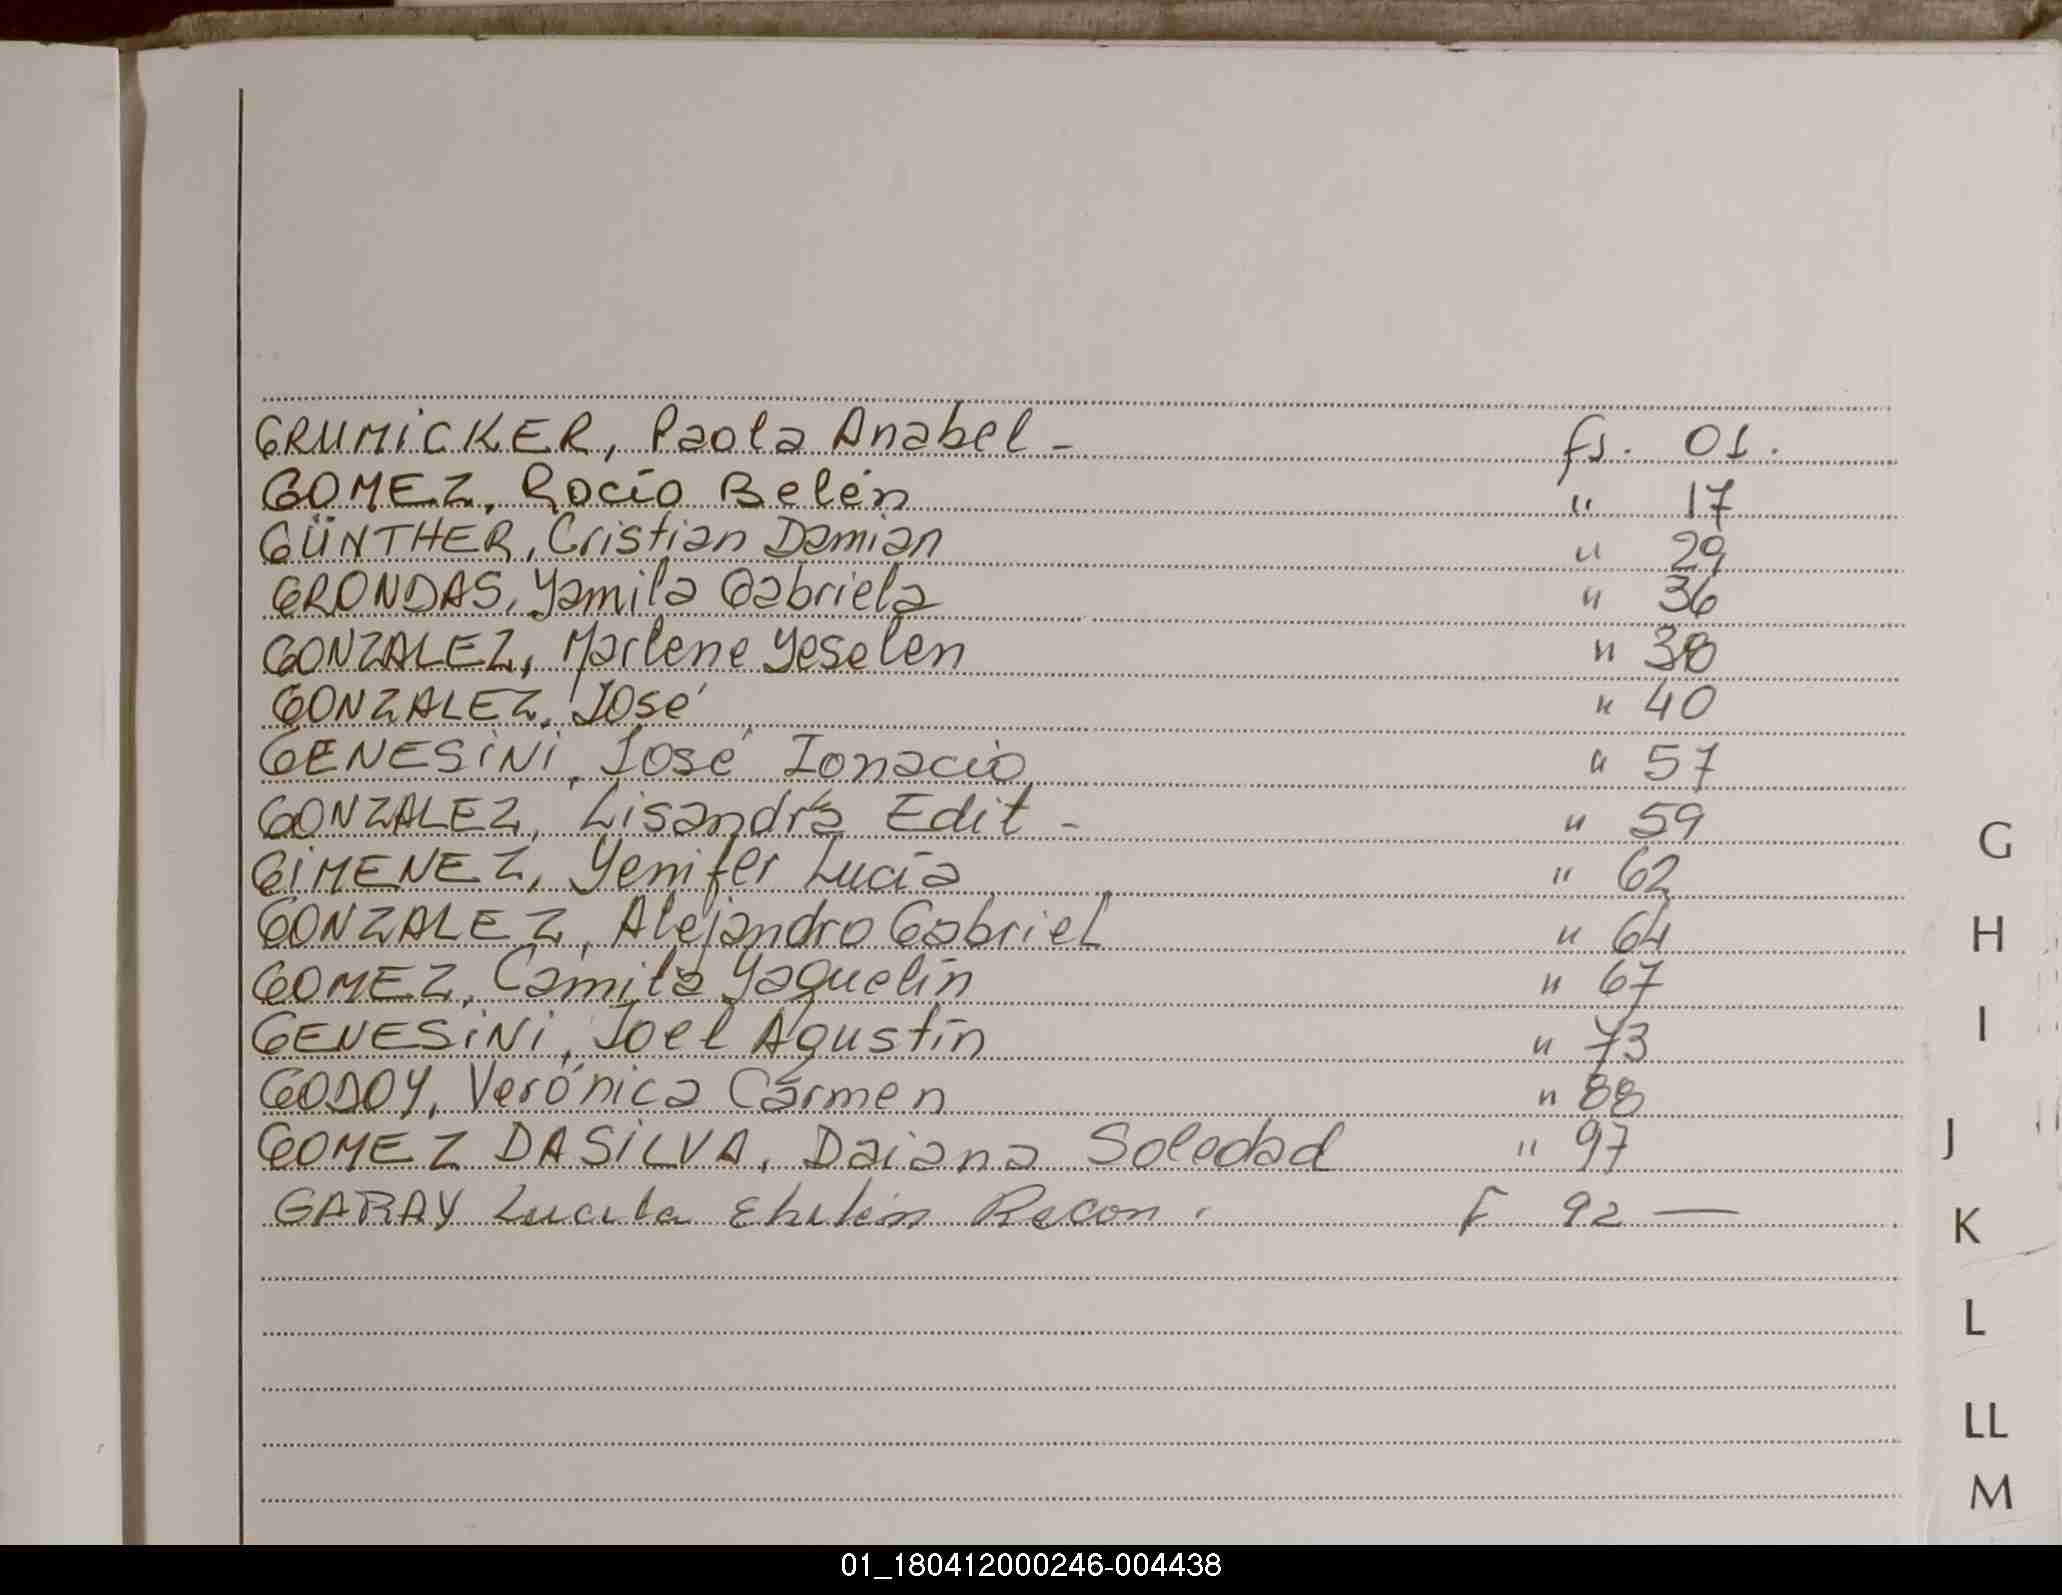 GRUMiCKER, Paola Anabel - fs. 01.
GOMEZ, Rocío Belén " 17
GÜNTHER, Cristian Damian " 29
GRONDAS, Yamila Gabriela " 36
GONZALEZ, Marlene Yeselen " 38
GONZALEZ, José " 40
GENESiNi, José Ignacio " 57
GONZALEZ, Lisandra Edit - " 59
GiMENEZ, Yenifer Lucía " 62
GONZALEZ, Alejandro Gabriel " 64
GOMEZ, Camila Yaquelin " 67
GENESiNi, Joel Agustín " 73
GODOY, Verónica Carmen " 88
GOMEZ DASiLVA, Daiana Soledad " 97
GARAY Lucila Recon. F 92 —
G
H
I
J
K
L
LL
M
01_180412000246-004438